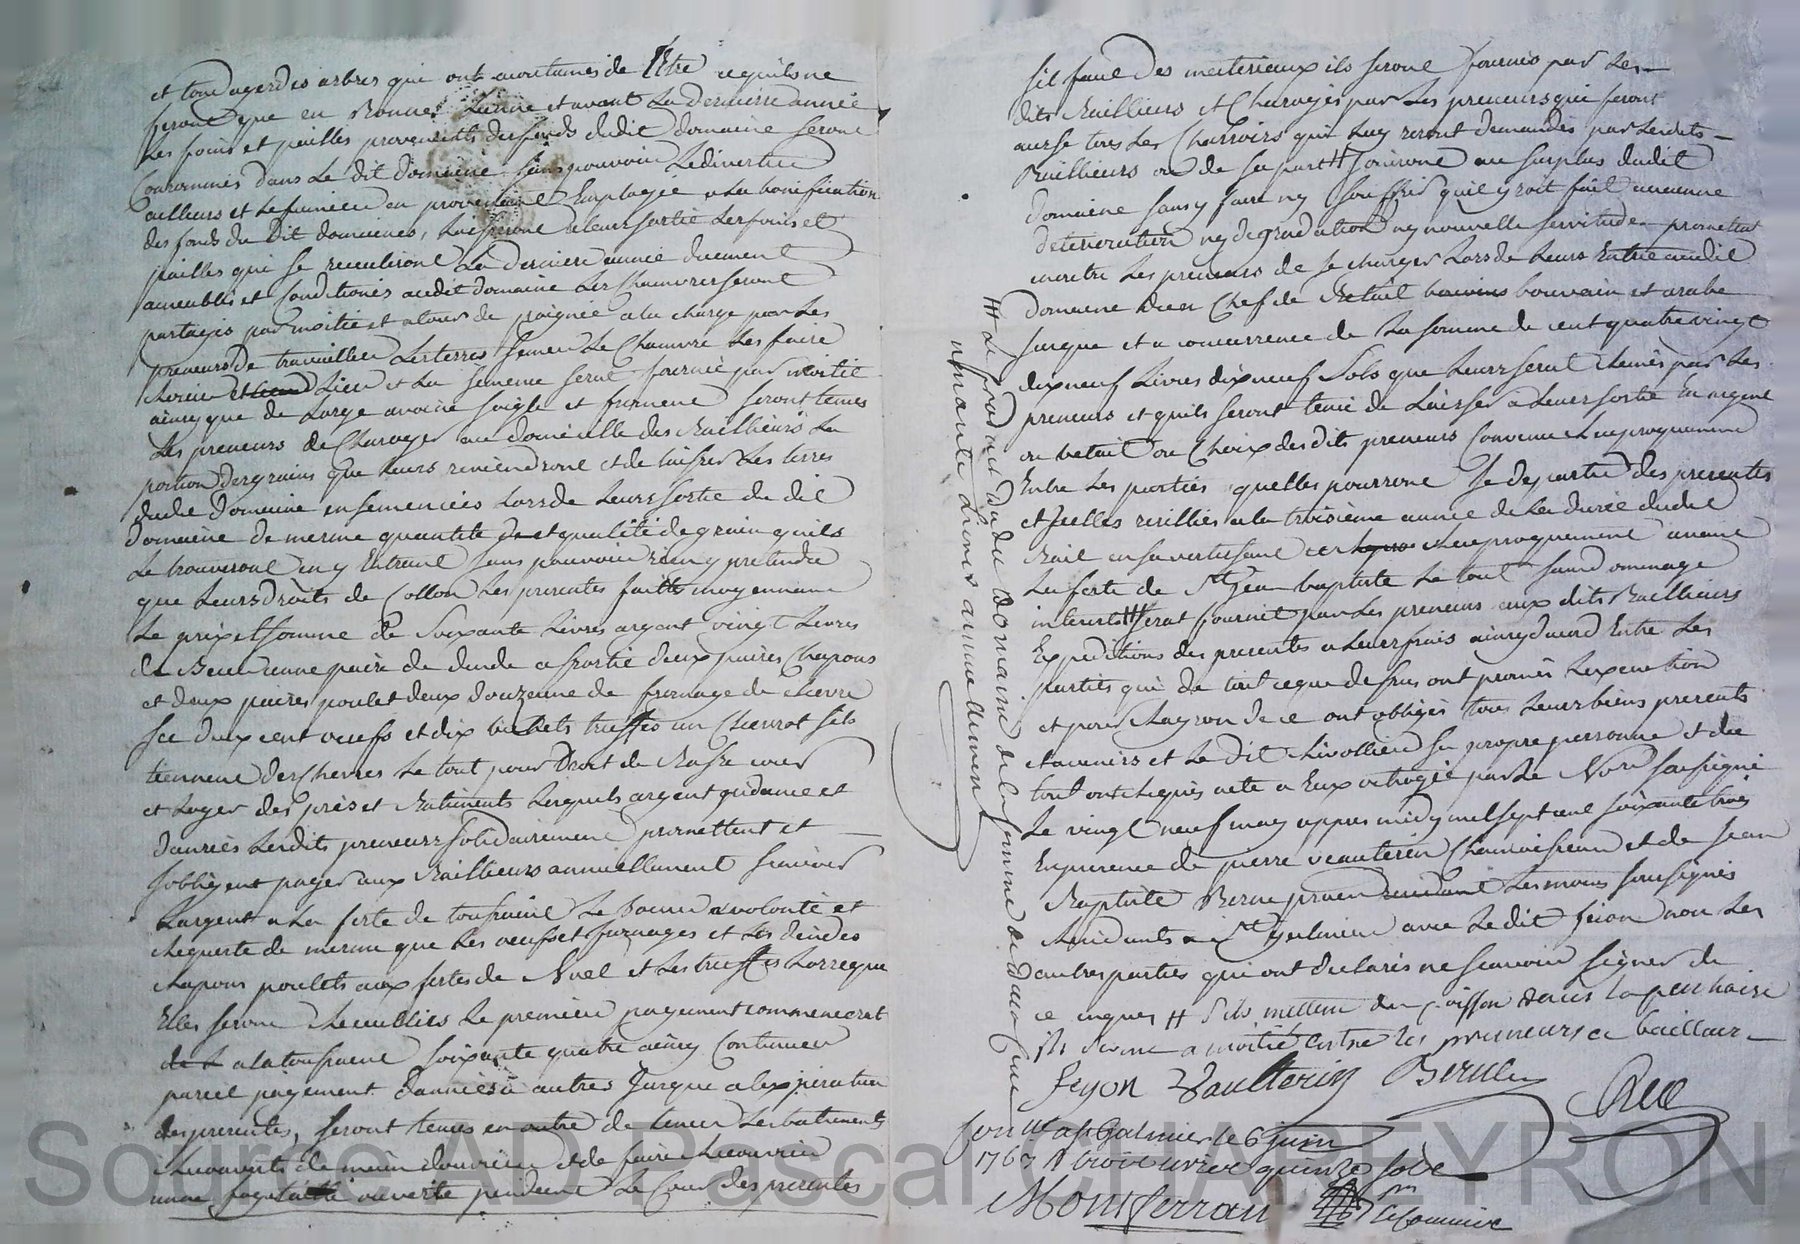 et tond ager des arbres qui ont acoutumés de l'Etre ce quils ne
feront que en Bonne Lunne et avant La derniere année
Les foins et pailles provenants des fonds dudit domaine seront
Consommés dans Le dit domaine sans pouvoir Le divertir
ailleurs et Le fumier en provenant Employé a La bonification
des fonds du Dit domaine, Laisseront a leur sortie Les foins et
pailles qui se recuilliront La derniere année duement
ameublés et Conditionés audit domaine Les chanvres seront
partagés par moitié et a tour de poignée a la charge par Les
preneurs de travailler Les terres semer Le Chanvre Les faire
Lier et La semence serat fournie par moitié
ainsy que de Lorge avoine seigle et froment seront tenus
Les preneurs de Charoyer au domicille des Baillieurs La
portion des grains que Leurs reviendront et de laisser Les terres
dudit Domaine ensemencées Lors de Leurs sortie du dit
Domaine de mesme quantité et qualité de grain quils
Le trouveront en y Entrant sans pouvoir rien y pretendre
que Leurs droits de Collon Les presentes faittes moyennant
Le prix et somme de Soixante Livres argent vingt Livres
de Beure une paire de dinde assortie deux paires Chapons
et deux paires poulet deux douzenne de fromage de chevre
sec deux cent oeufs et dix bichets truffes un Chevrot sils
tiennent des chevres Le tout pour Droit de Basse cour
et Loyer des prés et Batiments Lesquels argent quidance et
danrées Lesdits preneurs solidairement promettent et
sobligent payer aux Baillieurs annuellement scavoir
Largent a La feste de toussaint Le beurre a volonté et
Requeste de mesme que Les oeufs et fromages et Les dindes
chapons poulets aux festes de Noel et Les truffes Lorsque
Elles seront Recuillies Le premier payement commencerat
a la toussaint soixante quatre ainsy Continuer
pareil payement dannées a autres Jusque a lexpiration
des presentes, seront tenus en outre de tenir Les batiments
Recouverts de main douvrier et de faire Recouvrir
une fois ouverte pendant Le Cour des presentes
sil faut Des materiaux ils seront fournis par Les
dits Baillieurs et Charoyés par Les preneurs qui feront
aussy tous Les Charroirs qui Luy seront demandés par Lesdits
Baillieurs ou de sa part # Jouiront au surplus dudit
domaine sans y faire ny souffrir quil y soit fait aucunne
deterioration ny degradation ny nouvelle servitude promettent
en outre Les preneurs de se charger Lors de Leurs Entrée audit
domaine dun Chef de Betail bouvain et arabe
Jusque et a concurrence de La somme de cent quatre vingt
dix neuf Livres dix neuf Sols que Leurs serat Remis par Les
preneurs et quils seront tenu de Laisser a Leurs sortie En argent
ou betail au Choix desdits preneurs Convenu Reciproquement
Entre Les parties quelles pourront Se departir des presentes
et Icelles resillier a la troisieme année de La durée dudit
Bail en savertissant Reciproquement avant
La feste de St Jean baptiste Le tout sans dommage
interets ## serat fournit par Les preneurs aux dits Baillieurs
Expeditions des presentes a Leurs frais ainsy dacord Entre Les
parties qui de tout ce que dessus ont promis Lexecution
et pour Layson de ce ont obligés tous Leurs biens presents
et avenirs et Le dit Livollier sa propre personne et de
tout ont Requis acte a Eux octroyé par Le Nore soussigné
Le vingt neuf may appres midy mil sept cent soixante trois
En presence de pierre veauterin Chanvrisseur et de Jean
Baptiste Berne pruen Les mains soussignés
Residants a St Galmier avec Le dit feion non Les
autres parties qui ont declarés ne scavoir signer de
ce enquis # S'ils mettent du poisson dans la pechaire
ils seront a moitié entre les preneurs et bailleur
## Le prorata du du domaine de la somme de deux cent
nonante Livres annuellement
feyon Vaulterin Berne
Ree
Conttlle a St Galmier le 6 juin
1763 R trois livre quinze sols
Montferran